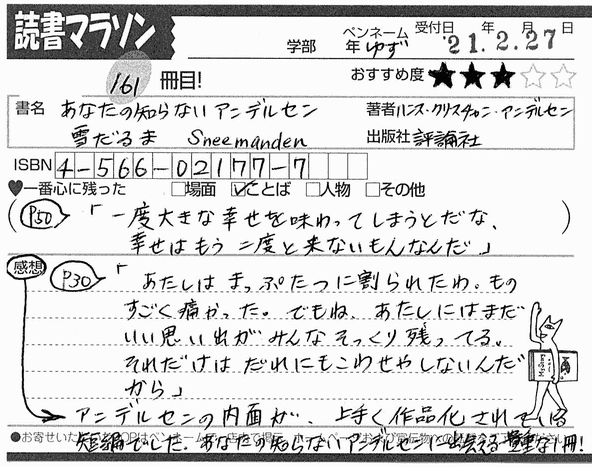 読書マラソン
学部 年 ペンネーム ゆず 受付日 年 月 日 '21.2.27
161 冊目! おすすめ度 ★★★☆☆
書名 あなたの知らないアンデルセン 著者 ハンス・クリスチャン・アンデルセン
雪だるま Sneemanden 出版社 評論社
ISBN 4-566-02177-7
♥一番心に残った □場面 ☑ことば □人物 □その他
(P50 「一度大きな幸せを味わってしまうとだな、
幸せはもう二度と来ないもんなんだ」)
感想 P30 「あたしはまっぷたつに割られたわ。もの
すごく痛かった。でもね、あたしにはまだ
いい思い出がみんなそっくり残ってる。
それだけはだれにもこわせやしないんだ
から」
アンデルセンの内面が、上手く作品化されている
短編でした。あなたの知らないアンデルセンに出会える貴重な1冊!
●お寄せいた POPはペンネーム で、店内で掲